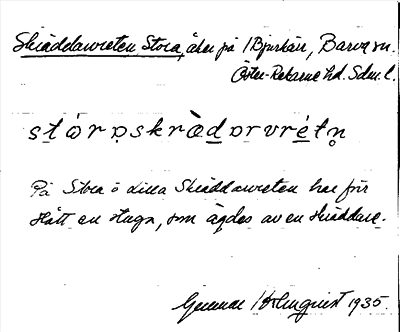 Skräddarvreten Stora, åker på 1 Bjurkärr, Barva sn.
Öster-Rekarne hd. Sdm. l.
stórɒskræ̀dɒrvrétn̥
På Stora o Lilla Skräddarvreten har förr
stått en stuga, som ägdes av en skräddare.
Gunnar Holmquist 1935.